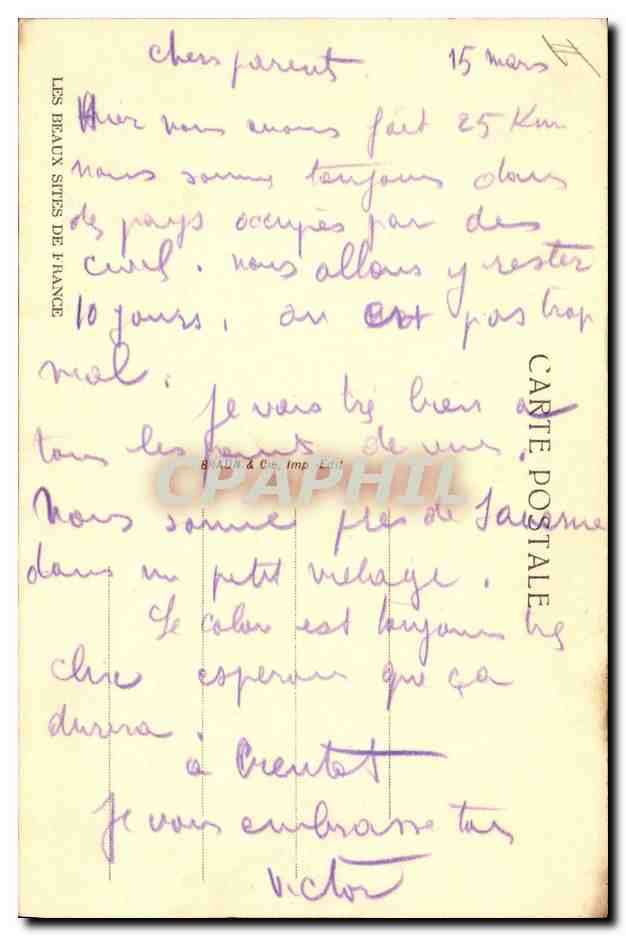 chers parents 15 mars
Hier nous avons fait 25 Km
nous somme toujours dans
des pays occupés par des
civel. nous allons y rester
10 jours, on est pas trop
mal.
Je vais trés bien a
tous les point de vue.
Nous somme pres de Saverne
dans un petit village.
Le colon est toujours trés
chic esperons que ça
durera.
à bientot
Je vous embrasse tous
Victor
LES BEAUX SITES DE FRANCE
CARTE POSTALE
BRAUN & Cie, Imp.-Edit.
CPAPHIL